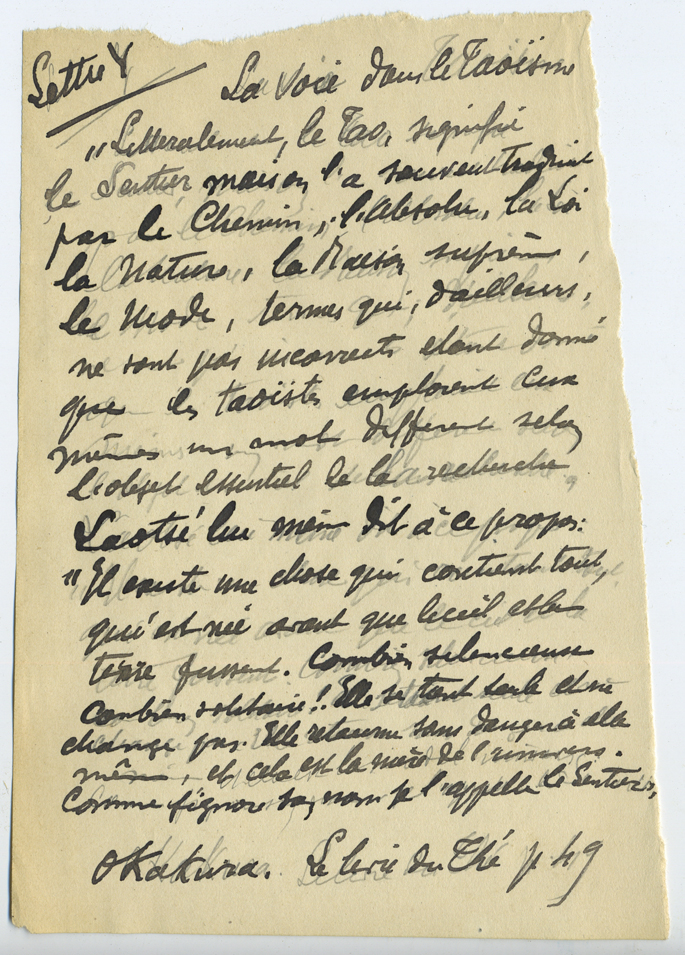 Lettre Y
La Voie dans le Taoïsme
"Litteralement, le Tao, signifie
le Sentier mais on l'a souvent traduit
par le Chemin, l'Absolu, la Loi
la Nature, la Raison suprême,
le Mode, termes qui, d'ailleurs,
ne sont pas incorrects etant donné
que les taoistes emploient eux
mêmes un mot different selon
l'objet essentiel de la recherche,
Laotsé lui même dit à ce propos:
"Il existe une chose qui contient tout,
qui est née avant que le ciel et la
terre fussent. Combien silencieuse
combien solitaire! Elle se tient seule et ne
change pas. Elle retourne sans danger à elle
même, et cela est la mère de l'univers.
Comme j'ignore son nom je l'appelle le Sentier,
Okakura. Le livre du Thé p 49